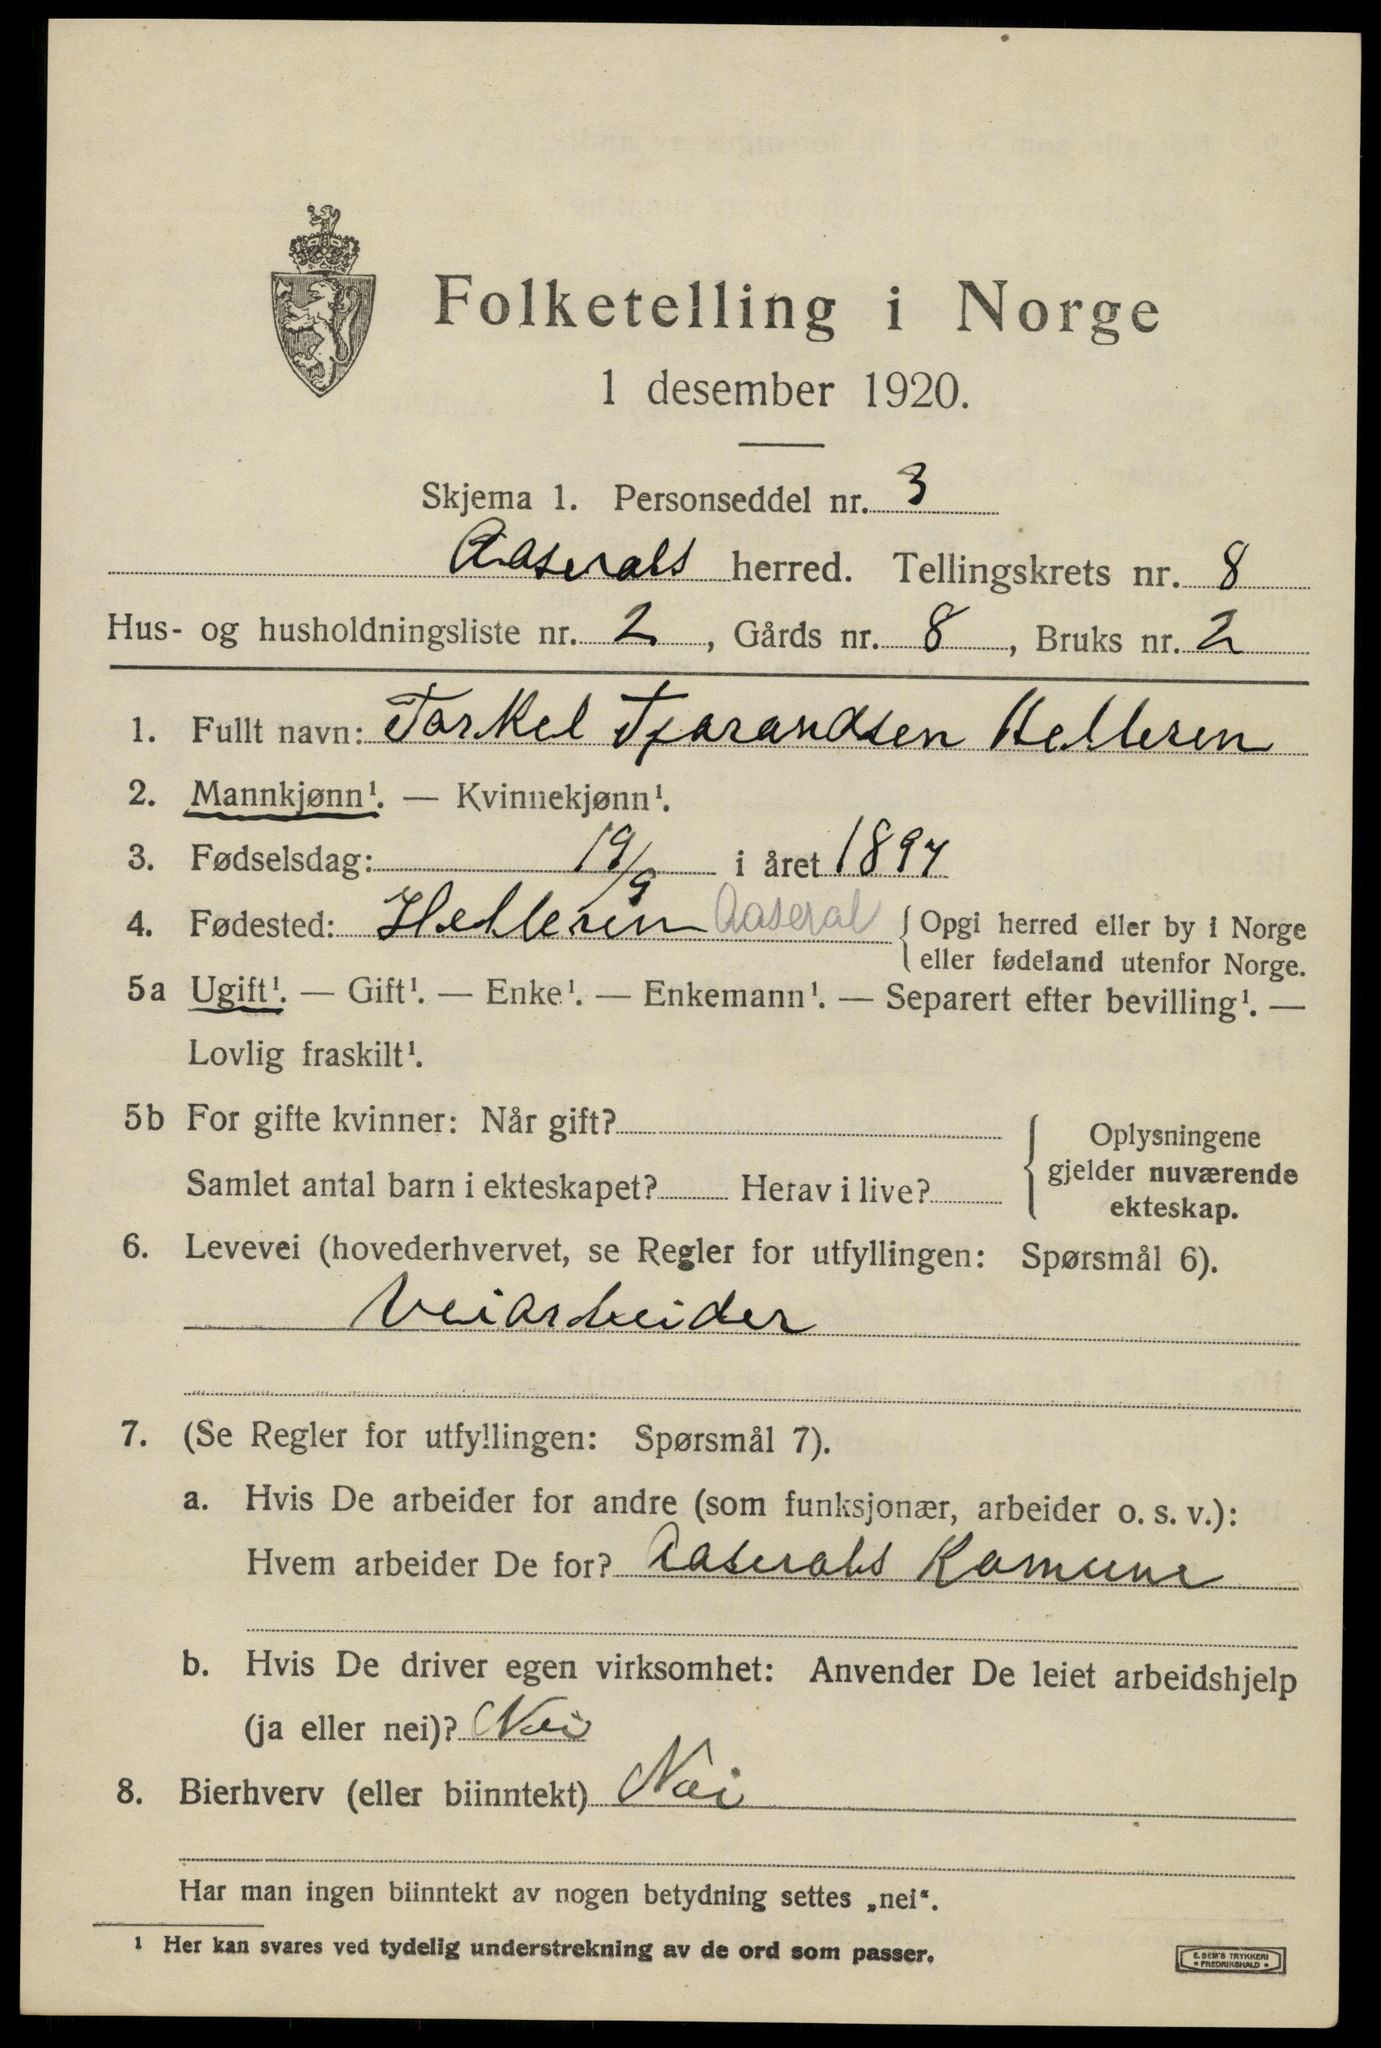 Folketelling i Norge
1 desember 1920.
Skjema 1. Personseddel nr. 3
Aaserals herred. Tellingskrets nr. 8
Hus- og husholdningsliste nr. 2, Gårds nr. 8, Bruks nr. 2
1. Fullt navn: Torkel Tjorandsen Helleren
2. Mannkjønn¹. — Kvinnekjønn¹.
3. Fødselsdag: 19/9 i året 1897
4. Fødested: Helleren Aaseral { Opgi herred eller by i Norge
eller fødeland utenfor Norge.
5a Ugift¹. — Gift¹. — Enke¹. — Enkemann¹. — Separert efter bevilling¹. —
Lovlig fraskilt¹.
5b For gifte kvinner: Når gift?
Samlet antal barn i ekteskapet? Herav i live?
Oplysningene
gjelder nuværende
ekteskap.
6. Levevei (hovederhvervet, se Regler for utfyllingen: Spørsmål 6).
Veiarbeider
7. (Se Regler for utfyllingen: Spørsmål 7).
a. Hvis De arbeider for andre (som funksjonær, arbeider o. s. v.):
Hvem arbeider De for? Aaserals Komune
b. Hvis De driver egen virksomhet: Anvender De leiet arbeidshjelp
(ja eller nei)? Nei
8. Bierhverv (eller biinntekt) Nei
Har man ingen biinntekt av nogen betydning settes „nei“.
¹ Her kan svares ved tydelig understrekning av de ord som passer.
E. SEM'S TRYKKERI
• FREDRIKSHALD •